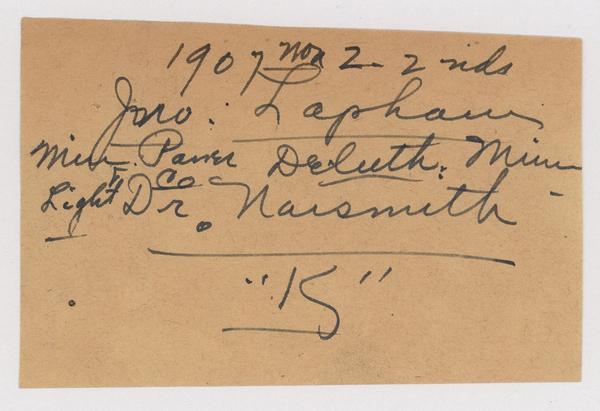 1907 Nov 2 - 2 nds
Jno. Lapham
Minn. Power Deluth. Minn
Light & Co
Dr. Naismith
"K"